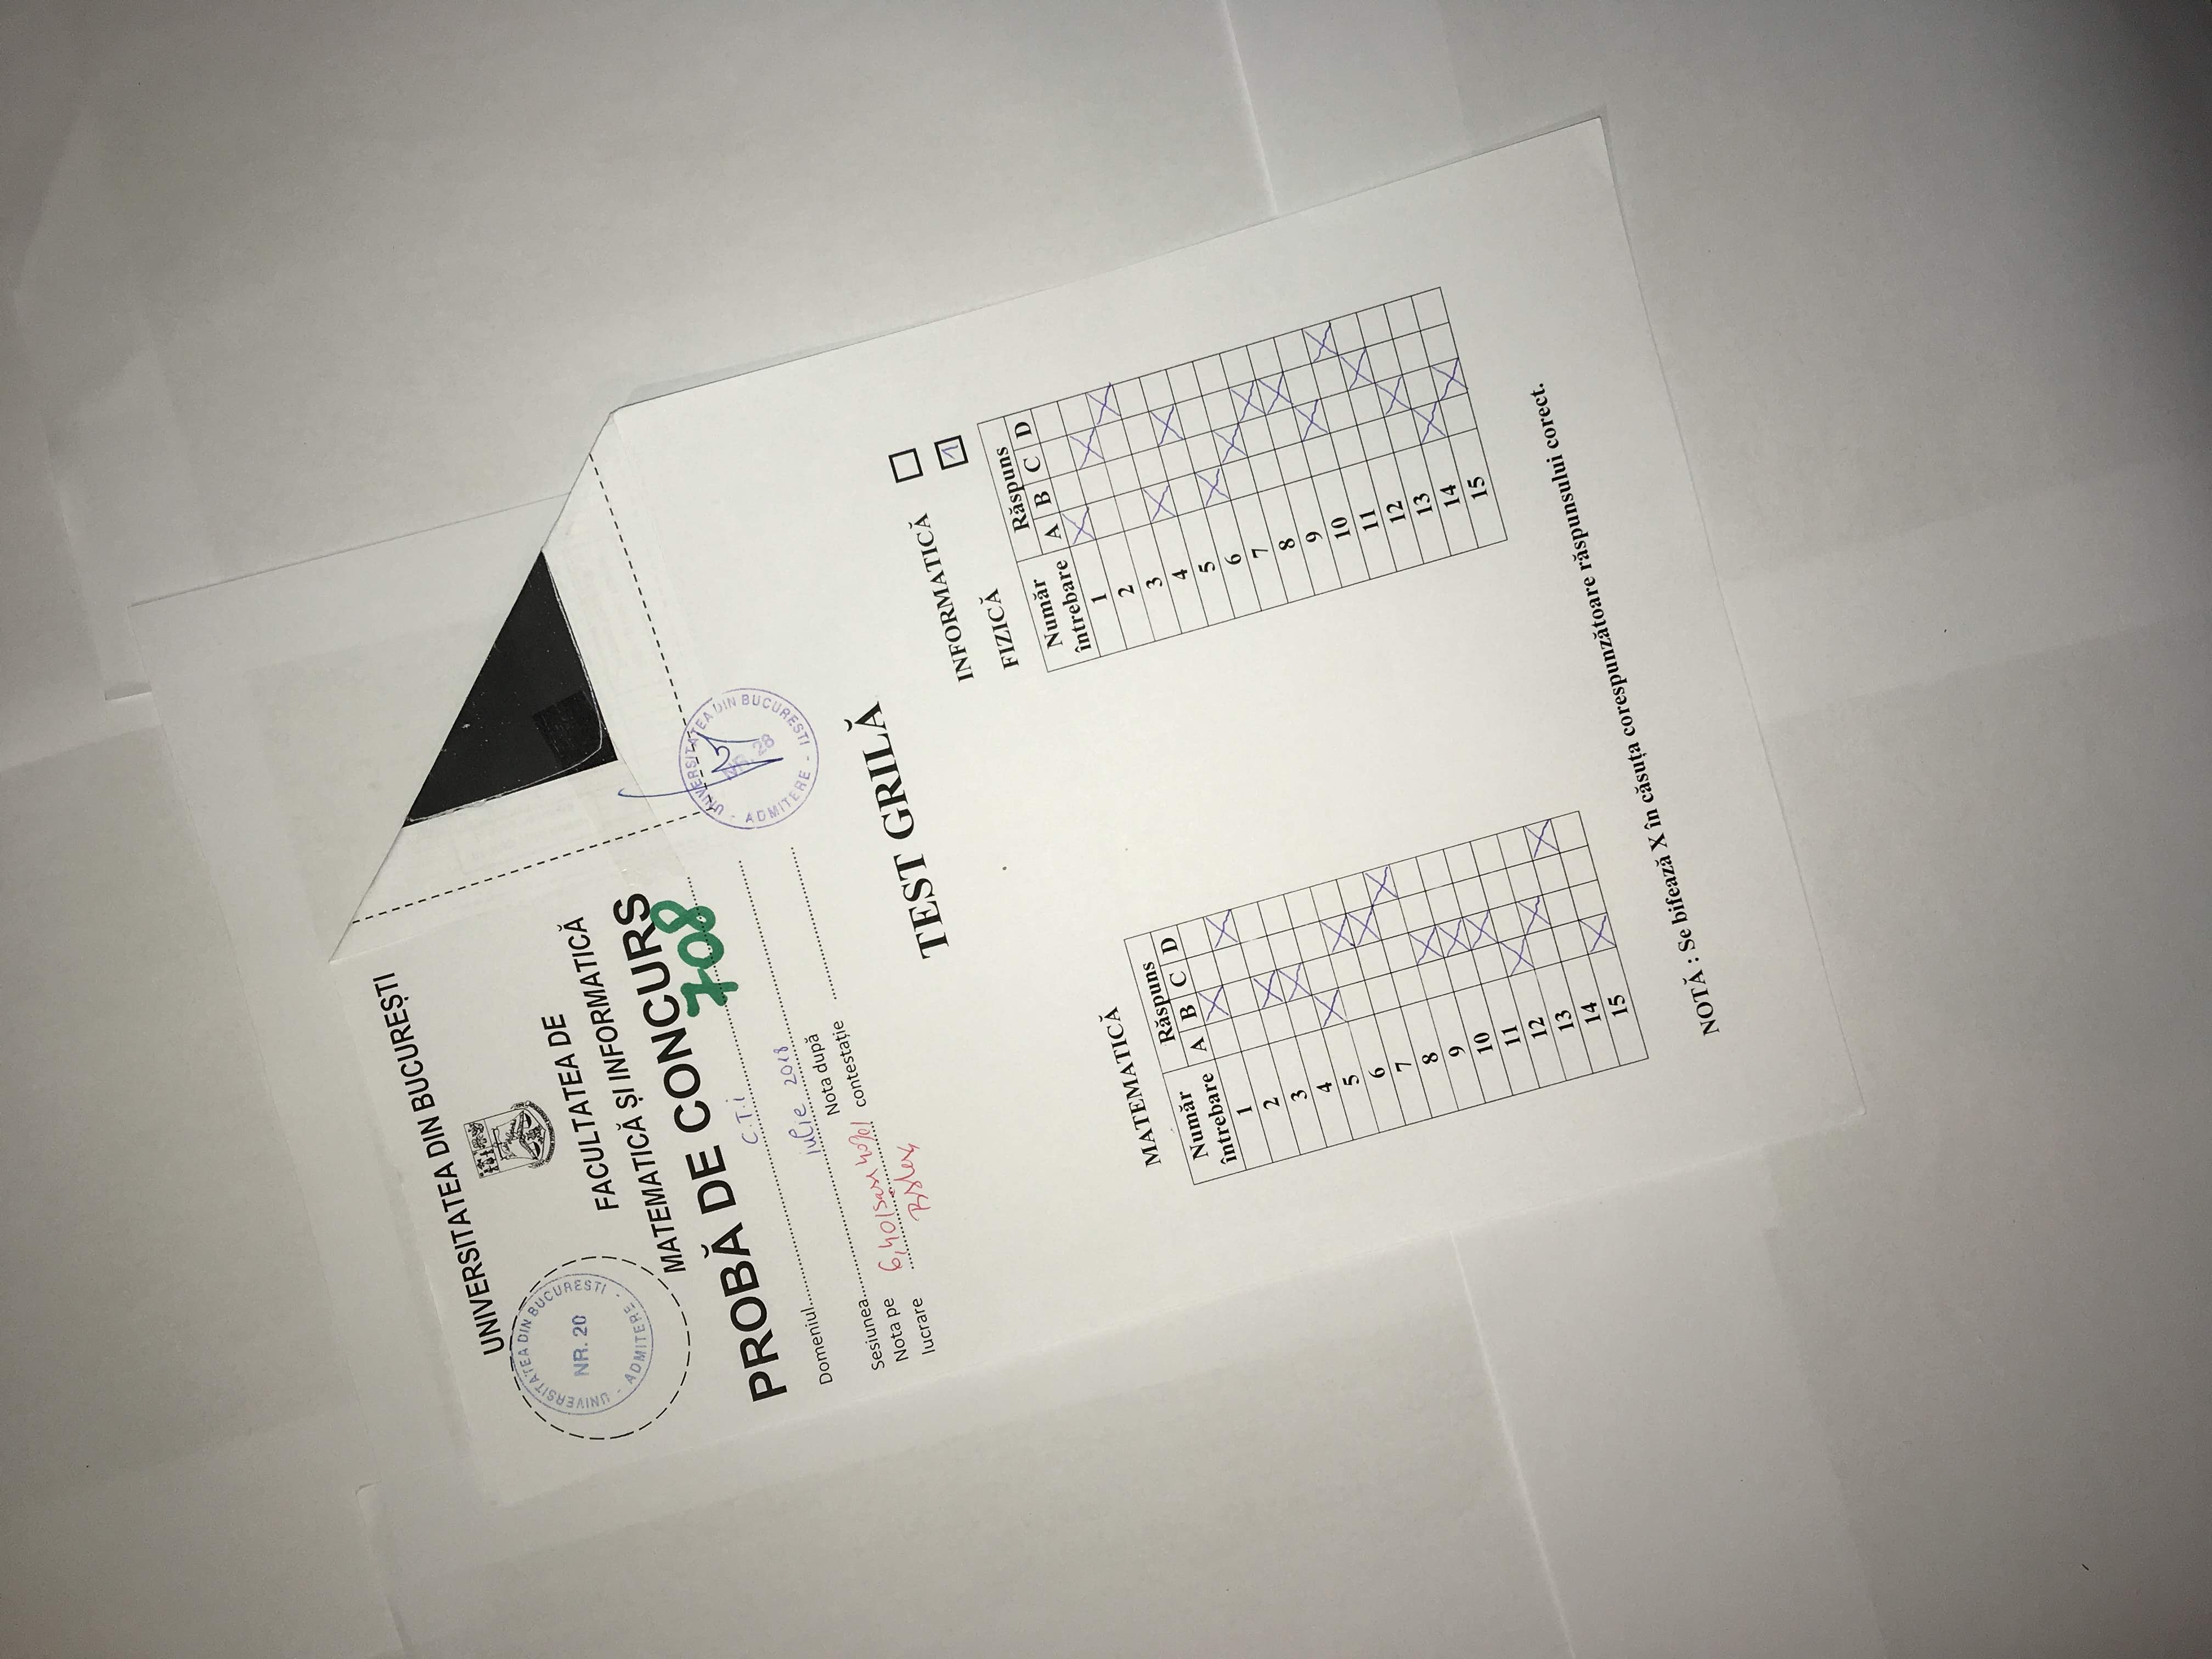 UNIVERSITATEA DIN BUCUREȘTI
UNIVERSITATEA DIN BUCUREȘTI - ADMITERE -
NR. 20
FACULTATEA DE
MATEMATICĂ ȘI INFORMATICĂ
PROBĂ DE CONCURS
708
Domeniul C.T.i
Sesiunea iulie 2018
Nota pe lucrare 6,40
Nota după contestație
UNIVERSITATEA DIN BUCURESTI - ADMITERE -
NR. 28
TEST GRILĂ
INFORMATICĂ
FIZICĂ 1
MATEMATICĂ
Număr întrebare Răspuns
A B C D
1
2
3
4
5
6
7
8
9
10
11
12
13
14
15
Număr întrebare Răspuns
A B C D
1
2
3
4
5
6
7
8
9
10
11
12
13
14
15
NOTĂ : Se bifează X în căsuța corespunzătoare răspunsului corect.